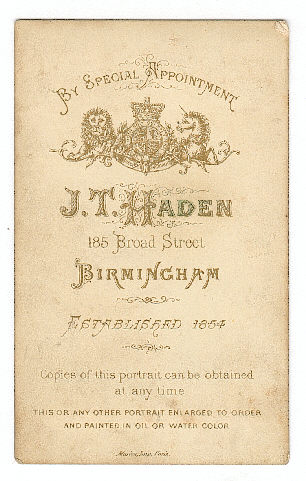 By Special Appointment
J. T. Haden
185 Broad Street
Birmingham
Established 1854
Copies of this portrait can be obtained
at any time
THIS OR ANY OTHER PORTRAIT ENLARGED TO ORDER
AND PAINTED IN OIL OR WATER COLOR
Marion, Imp. Paris